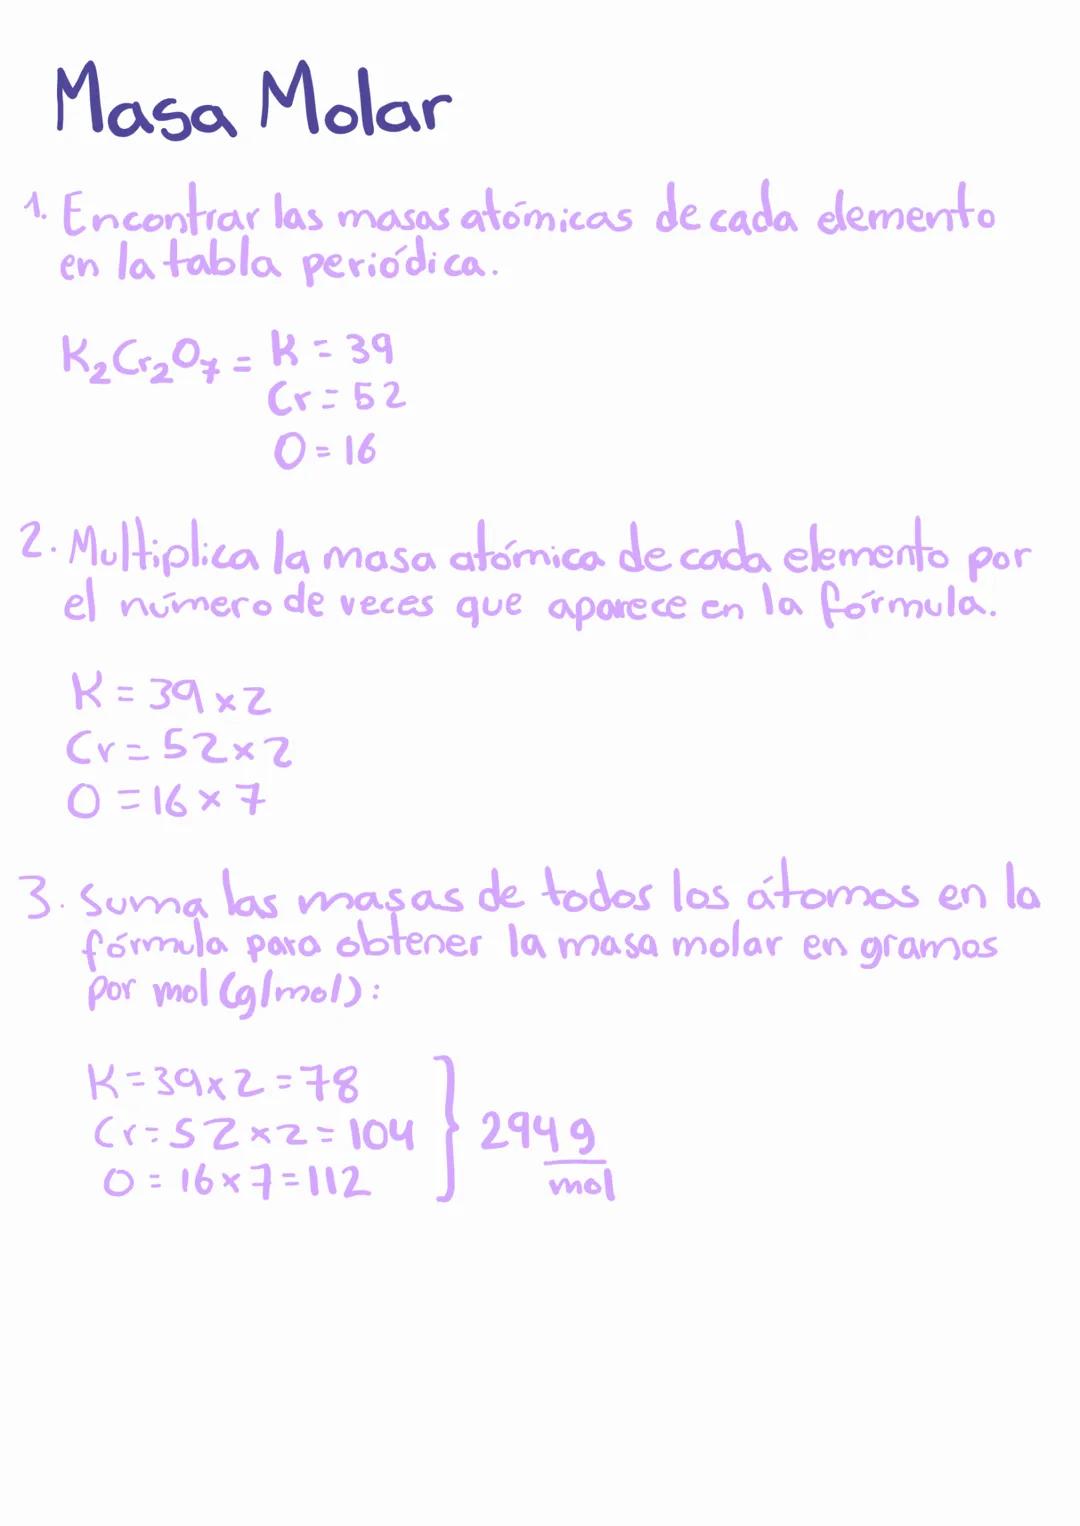 Masa Molar
1. Encontrar las masas atómicas de cada elemento
en la tabla periódica.
K₂Cr₂O₇ = K = 39
Cr = 52
O = 16
2. Multiplica la masa atómica de cada elemento por
el número de veces que aparece en la fórmula.
K = 39 x 2
Cr = 52 x 2
O = 16 x 7
3. Suma las masas de todos los átomos en la
fórmula para obtener la masa molar en gramos
por mol (g/mol):
K = 39 x 2 = 78
Cr = 52 x 2 = 104 } 294 g
O = 16 x 7 = 112 mol